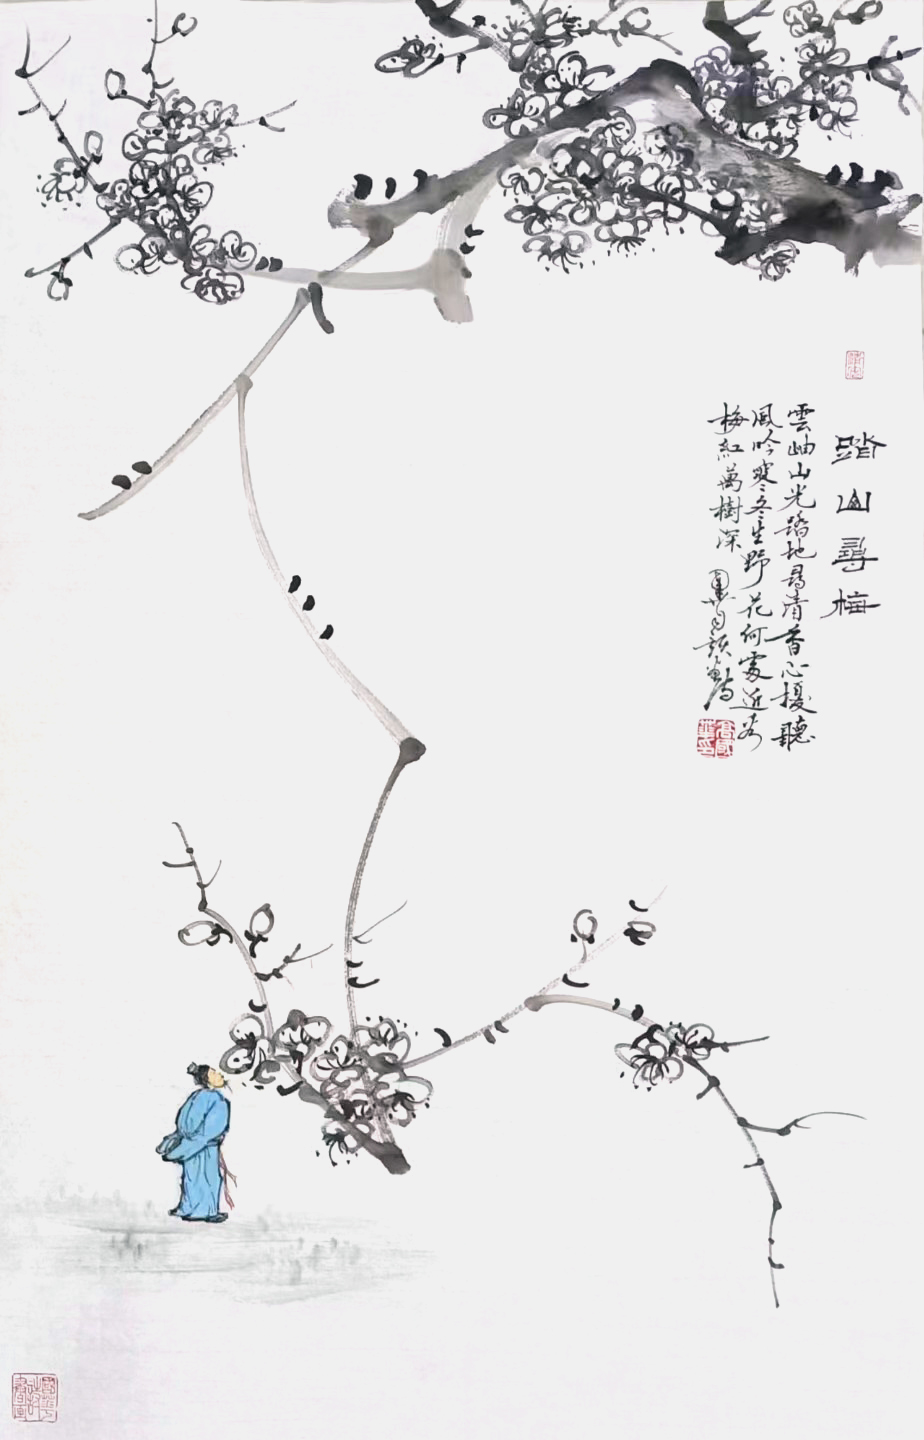 踏山尋梅
雲岫山光踏地尋清香心擾聽
風吟寒冬生野花何處近看
梅紅萬樹深
高國華印